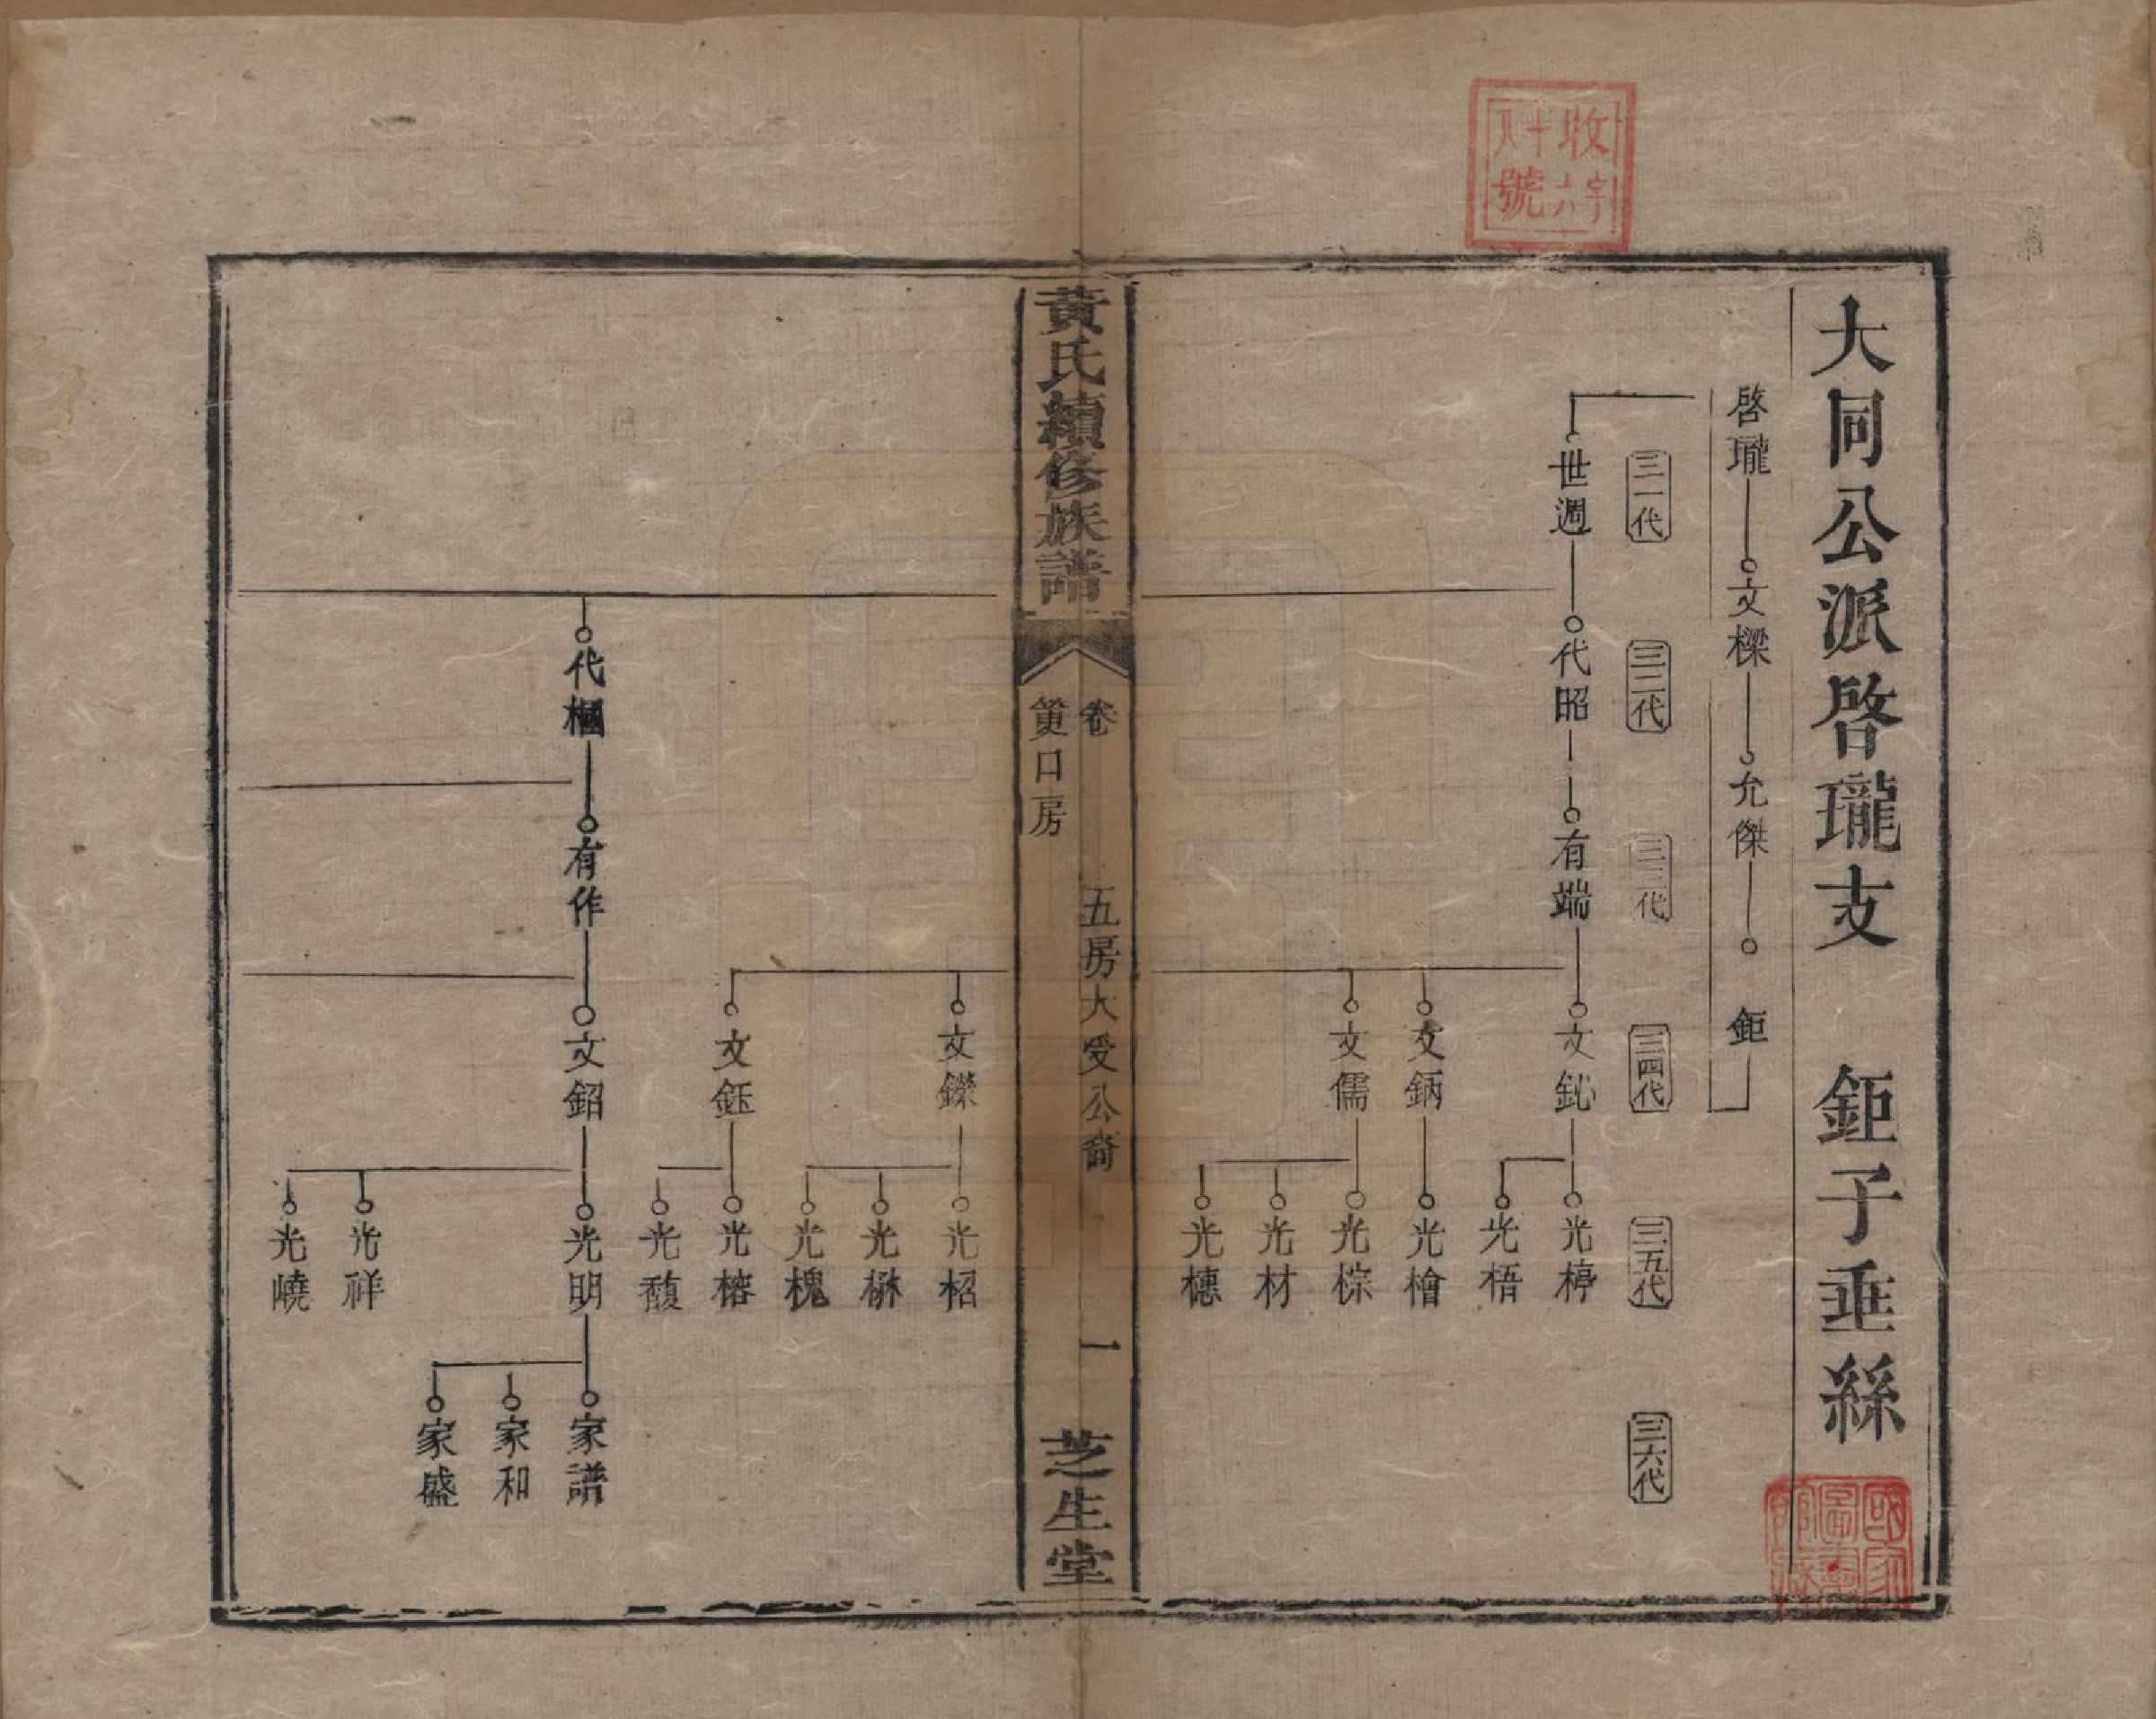 大同公派啓瓏支 鉅子垂絲
啓瓏 文樑 允傑 鉅
三一代 三二代 三三代 三四代 三五代 三六代
世週 代昭 有端 文鈊 光楟
光梧
文鈵 光檜
文儒 光棕
光材
光橞
黃氏續修族譜 卷 簧口房 五房大受公裔 一 芝生堂
文鑅 光柖
光楙
光槐
文鈺 光榕
光馥
代楓 有作 文鉊 光明 家譜
家和
家盛
光祥
光嶢
收字十六 號